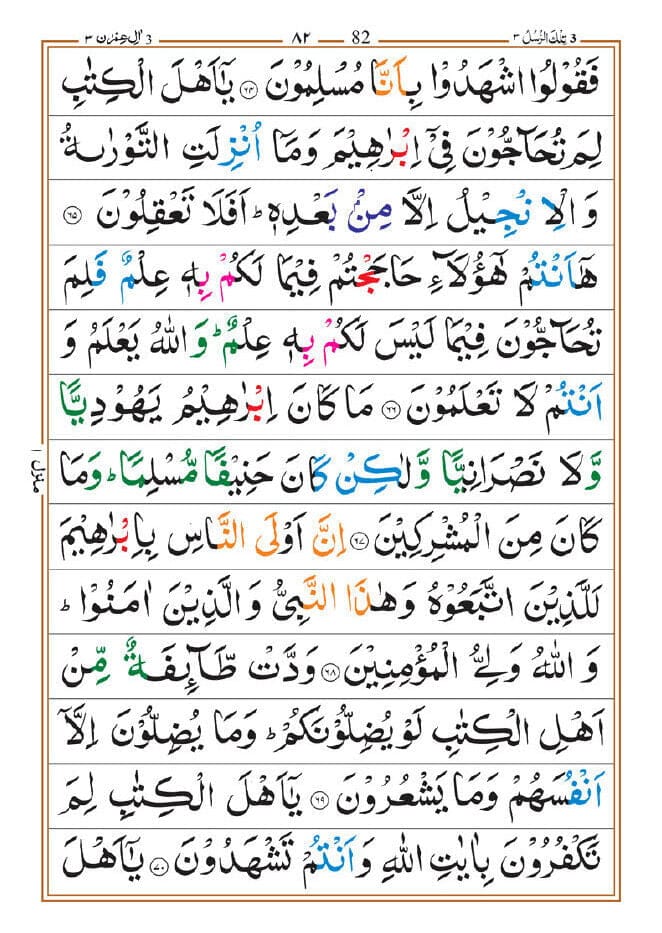 3 تِلْكَ الرُّسُلُ ٣
82 ٨٢
3 اٰلِ عِمْرٰن ٣
فَقُوْلُوا اشْهَدُوْا بِاَنَّا مُسْلِمُوْنَ ﴿٦٤﴾ يٰۤاَهْلَ الْكِتٰبِ
لِمَ تُحَآجُّوْنَ فِىْۤ اِبْرٰهِيْمَ وَمَاۤ اُنْزِلَتِ التَّوْرٰٮةُ
وَالْاِنْجِيْلُ اِلَّا مِنْۢ بَعْدِهٖؕ اَفَلَا تَعْقِلُوْنَ ﴿٦٥﴾
هٰۤاَنْتُمْ هٰٓؤُلَآءِ حَاجَجْتُمْ فِيْمَا لَكُمْ بِهٖ عِلْمٌ فَلِمَ
تُحَآجُّوْنَ فِيْمَا لَيْسَ لَكُمْ بِهٖ عِلْمٌؕ وَاللّٰهُ يَعْلَمُ وَ
اَنْتُمْ لَا تَعْلَمُوْنَ ﴿٦٦﴾ مَا كَانَ اِبْرٰهِيْمُ يَهُوْدِيًّا
وَّلَا نَصْرَانِيًّا وَّلٰكِنْ كَانَ حَنِيْفًا مُّسْلِمًاؕ وَمَا
كَانَ مِنَ الْمُشْرِكِيْنَ ﴿٦٧﴾ اِنَّ اَوْلَى النَّاسِ بِاِبْرٰهِيْمَ
لَلَّذِيْنَ اتَّبَعُوْهُ وَهٰذَا النَّبِىُّ وَالَّذِيْنَ اٰمَنُوْاؕ
وَاللّٰهُ وَلِىُّ الْمُؤْمِنِيْنَ ﴿٦٨﴾ وَدَّتْ طَّآئِفَةٌ مِّنْ
اَهْلِ الْكِتٰبِ لَوْ يُضِلُّوْنَكُمْؕ وَمَا يُضِلُّوْنَ اِلَّاۤ
اَنْفُسَهُمْ وَمَا يَشْعُرُوْنَ ﴿٦٩﴾ يٰۤاَهْلَ الْكِتٰبِ لِمَ
تَكْفُرُوْنَ بِاٰيٰتِ اللّٰهِ وَاَنْتُمْ تَشْهَدُوْنَ ﴿٧٠﴾ يٰۤاَهْلَ
منزل ١